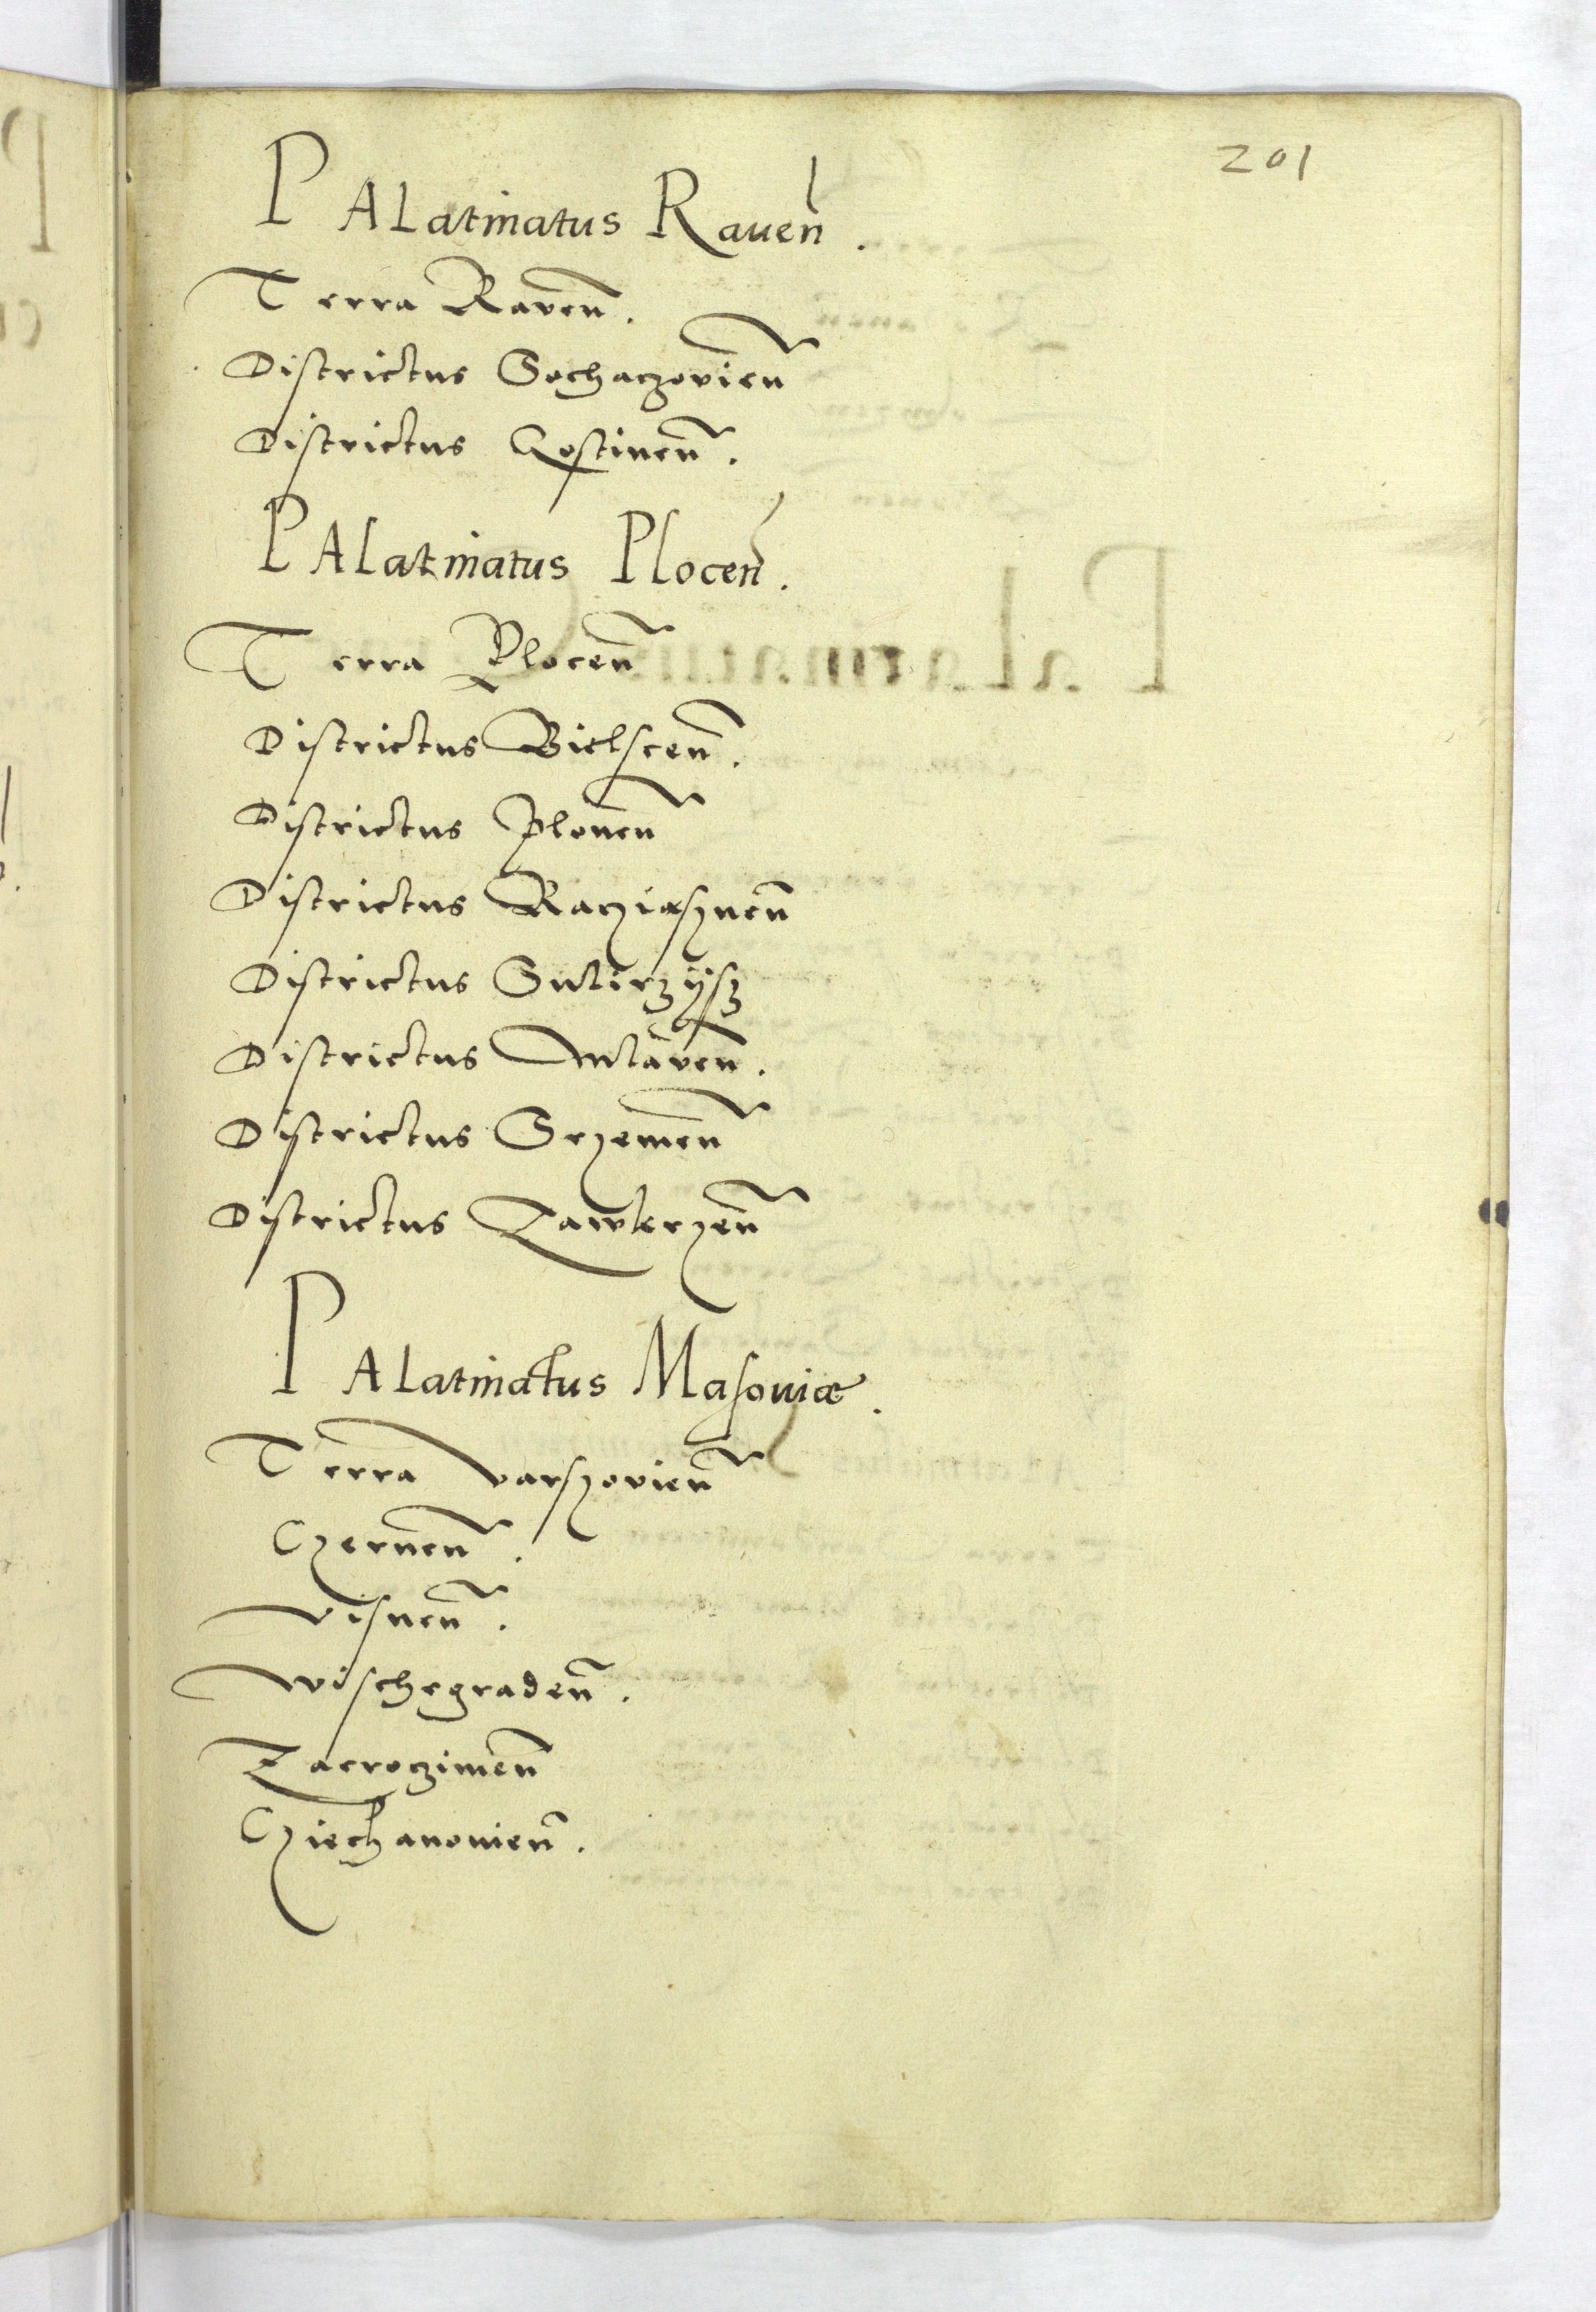 201
PALatinatus Rauen̄.
Terra Raven̄.
Districtus Sochaczovien̄
Districtus Gostinen̄.
PALatinatus Plocen̄.
Terra Plocen̄
Districtus Bielscen̄.
Districtus Plonen̄
Districtus Racziąsznen̄
Districtus
Districtus Mlaven̄.
Districtus Srzemen̄
Districtus Zawkrzen̄
PALatinatus Masouiæ.
Terra Varszovien̄
Czernen̄.
Visnen̄.
Wischegraden̄.
Zacroczimen̄
Cziechanouien̄.